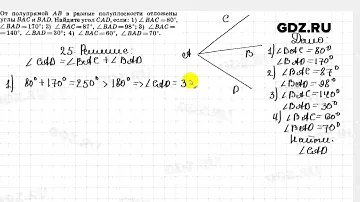 От полупрямой AB в разные полуплоскости отложены
углы BAC и BAD. Найдите угол CAD, если: 1) ∠BAC=80°,
∠BAD=170°; 2) ∠BAC=87°, ∠BAD=98°; 3) ∠BAC=
=140°, ∠BAD=30°; 4) ∠BAC=60°, ∠BAD=70°.
GDZ.RU
25 Решение
∠CAD = ∠BAC + ∠BAD
1) 80° + 170° = 250° > 180° ⇒ ∠CAD = 3
C
A
B
D
Дано:
1) ∠BAC = 80°
∠BAD = 170°
2) ∠BAC = 87°
∠BAD = 98°
3) ∠BAC = 140°
∠BAD = 30°
4) ∠BAC = 60°
∠BAD = 70°
Найти:
∠CAD